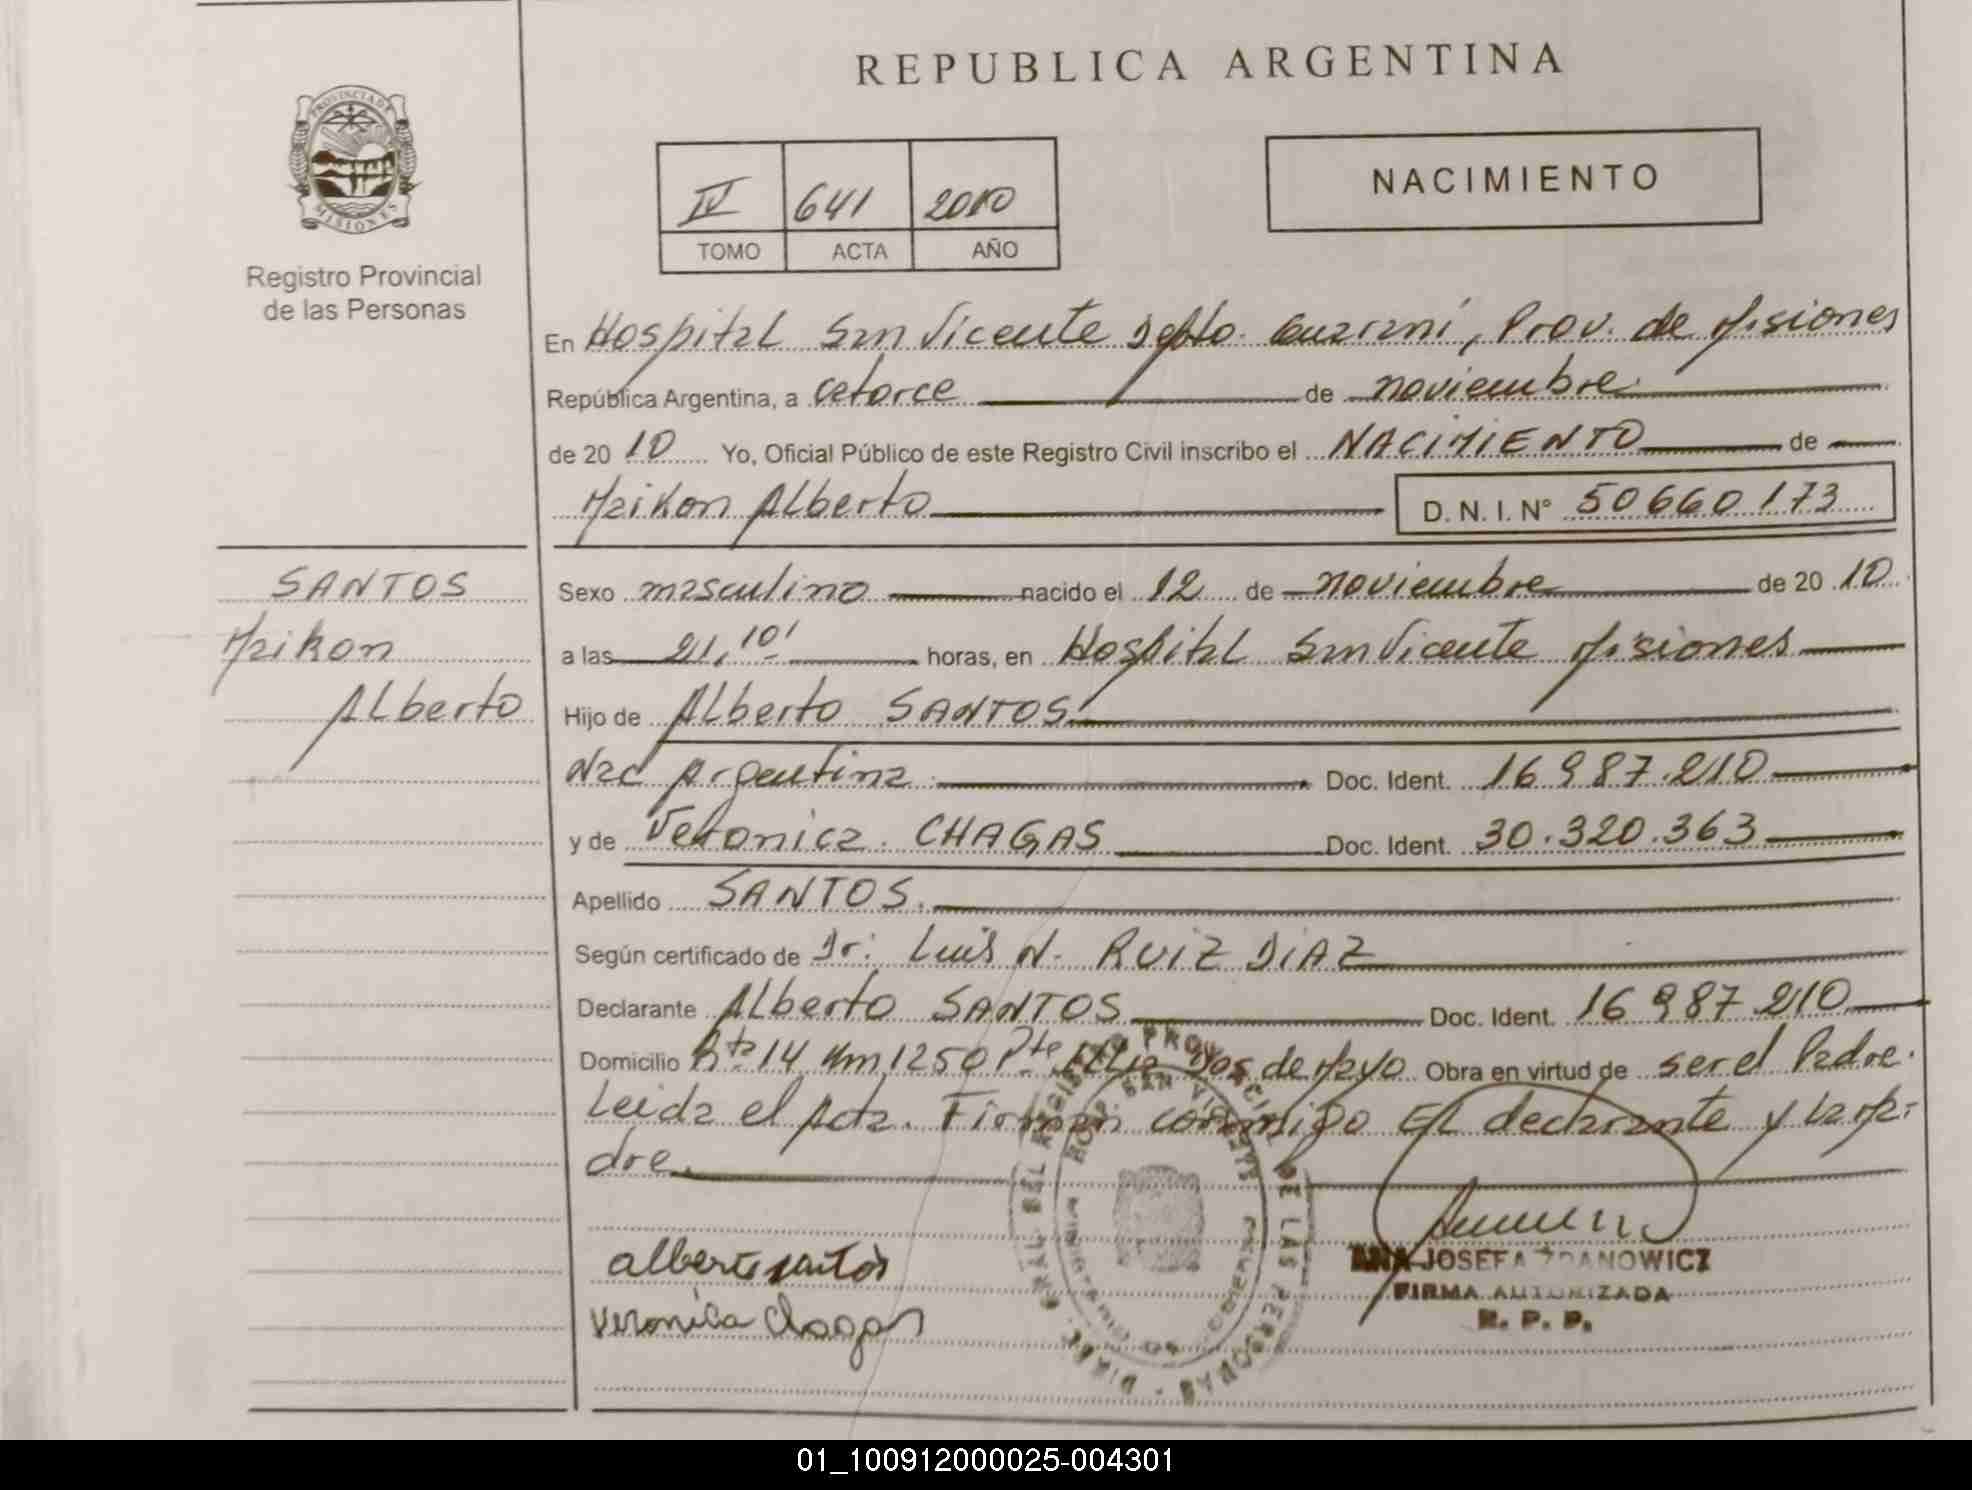 REPUBLICA ARGENTINA
PROVINCIA DE
MISIONES
Registro Provincial
de las Personas
IV 641 2010
TOMO ACTA AÑO
NACIMIENTO
En Hospital San Vicente Dpto. Guaraní, Prov. de Misiones
República Argentina, a catorce de noviembre
de 20 10 Yo, Oficial Público de este Registro Civil inscribo el NACIMIENTO de
Maikon Alberto D. N. I. Nº 50660173
SANTOS
Maikon
Alberto
Sexo masculino nacido el 12 de noviembre de 20 10
a las 21,10' horas, en Hospital San Vicente Misiones
Hijo de Alberto SANTOS
Nac Argentina Doc. Ident. 16987.210
y de Veronica CHAGAS Doc. Ident. 30.320.363
Apellido SANTOS
Según certificado de Dr: Luis N. RUIZ DIAZ
Declarante Alberto SANTOS Doc. Ident. 16987.210
Domicilio Rta 14 Km 1250 Pte Dos de Mayo Obra en virtud de ser el Padre.
Leida el Acta. Firman conmigo EL declarante y la Ma-
dre
alberto santos
veronica Chagas
DEL REGISTRO PROVINCIAL DE LAS PERSONAS
HOSP. SAN VICENTE
ANA JOSEFA ZDANOWICZ
FIRMA AUTORIZADA
R. P. P.
01_100912000025-004301